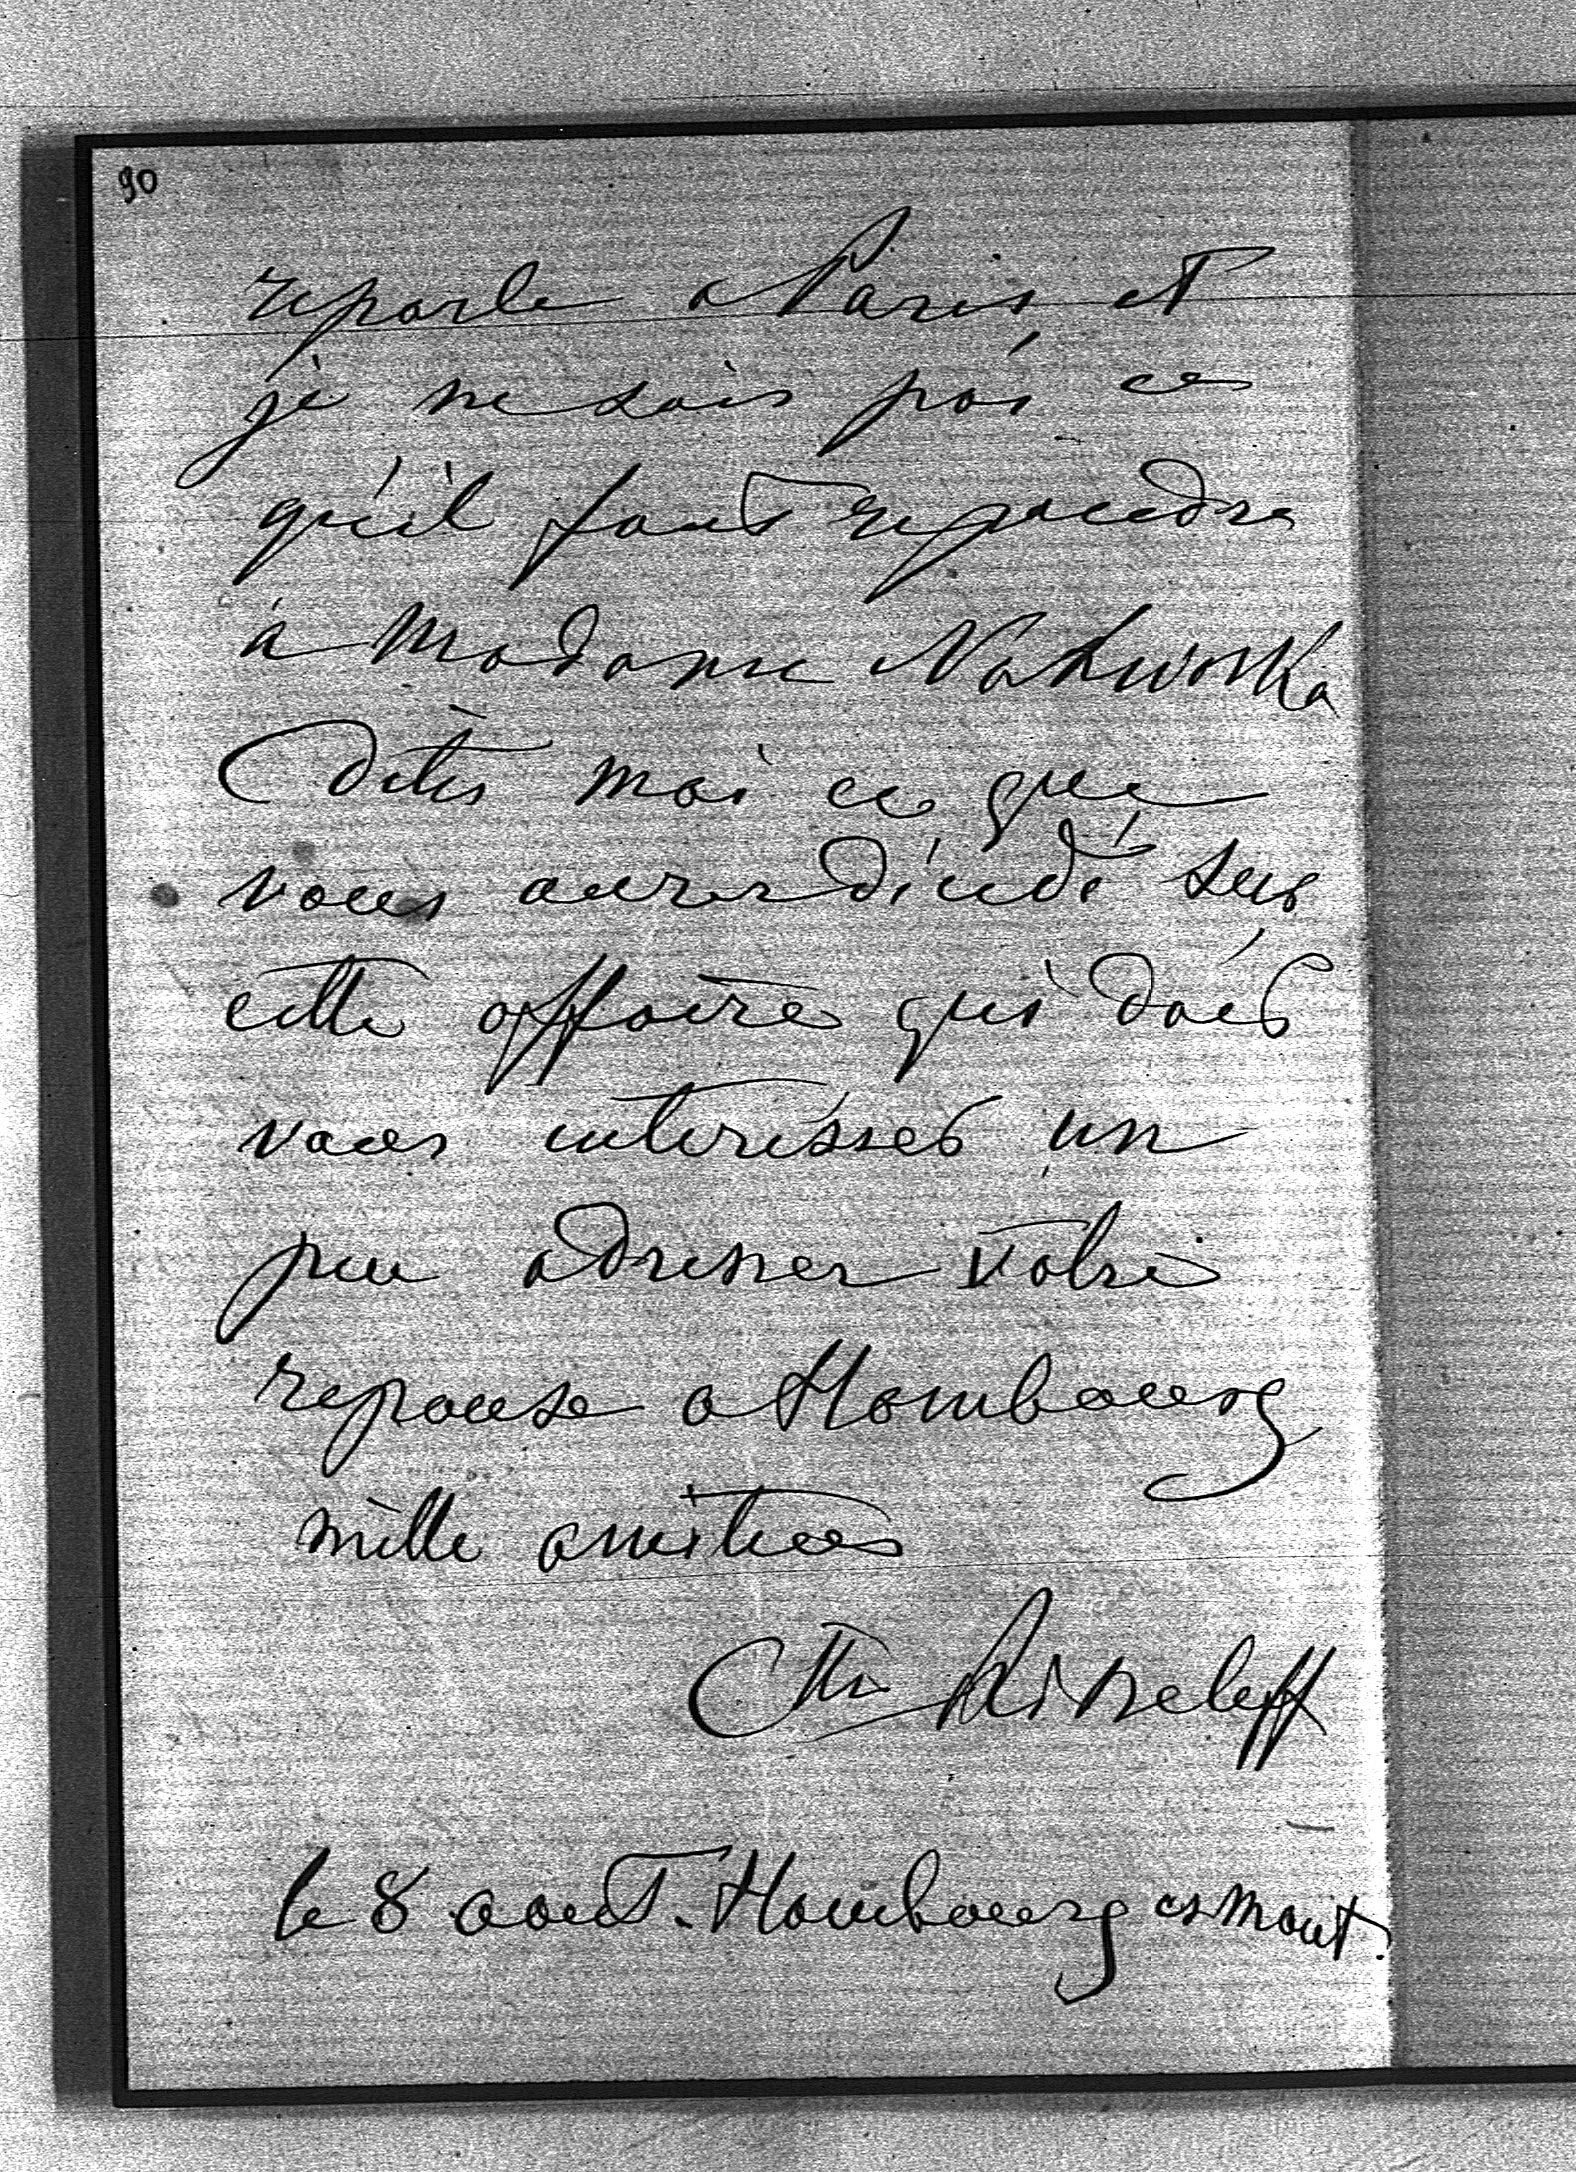 90
reparle a Paris et
je ne sais pas ce
qu'il faut repondre
à Madame
Dites moi ce que
vous aurez décidé sur
cette affaire qui doit
vous interésser un
peu adressez votre
reponse a Hombourg
mille amities
Ctsse Kisseleff
le 8 aout. Hombourg es mont.